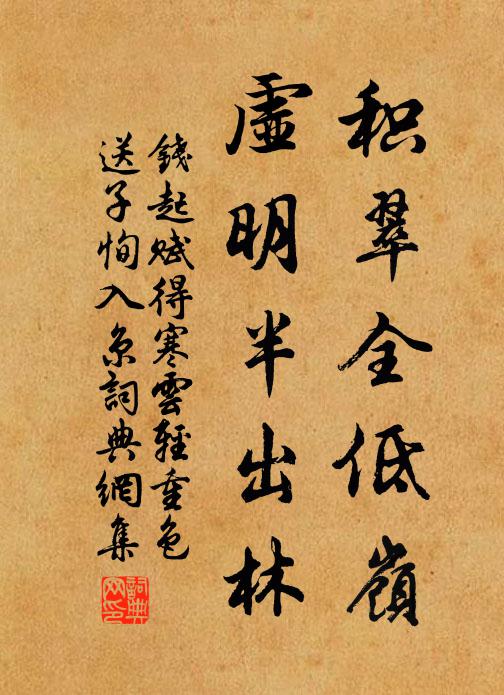 积翠全低嶺
虚明半出林
錢起赋得寒雲輕重色
送子恂入京詞典網集
詞典
网印